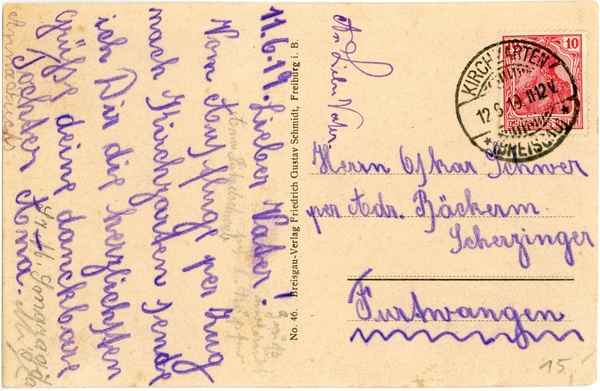 11.6.19. Lieber Vater!
Vom Ausfluge per Zug
nach Kirchzarten sende
ich Dir die herzlichsten
Grüße deine danckbare
Tochter
No. 46. Breisgau-Verlag Friedrich Gustav Schmidt, Freiburg i. B.
An Lieben Vater
10
KIRCHZARTEN
12.6.19. 11-12 V.
* (BREISGAU) *
Herrn Oskar Schwer
per Adr. Bäckerm.
Scherzinger
Furtwangen
15,